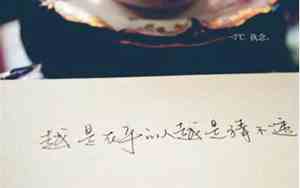 执念。
越是在乎的人越是猜不透